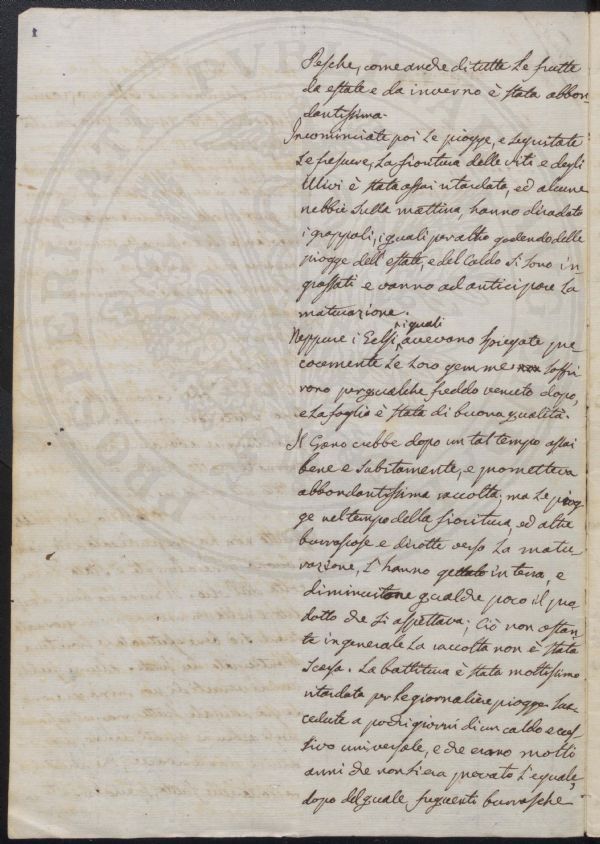 1
Pesche, come anche di tutte le frutte
da estate e da inverno è stata abbon
dantissima.
Incominciate poi le piogge, e seguitate
le frescure, la fioritura delle viti e degli
Ulivi è stata assai ritardata, ed alcune
nebbie sulla mattina, hanno diradato
i grappoli, i quali peraltro godendo delle
piogge dell'estate, e del caldo si sono in
grossati e vanno ad anticipare la
maturazione.
Neppure i Gelsi, i quali avevano spiegate pre
cocemente le loro gemme soffri
rono per qualche freddo venuto dopo,
e la foglia è stata di buona qualità.
Il Grano crebbe dopo un tal tempo assai
bene e subitamente, e prometteva
abbondantissima raccolta; ma le piog
ge nel tempo della fioritura, ed altre
burrascose e dirotte verso la matu
razione, l'hanno gettato in terra, e
diminuitone qualche poco il pro
dotto che si aspettava; Ciò non ostan
te in generale la raccolta non è stata
scarsa. La battitura è stata moltissimo
ritardata per le giornaliere piogge suc
cedute a pochi giorni di un caldo eces
sivo universale, e che erano molti
anni che non si era provato l'eguale,
dopo del quale, frequenti burrasche